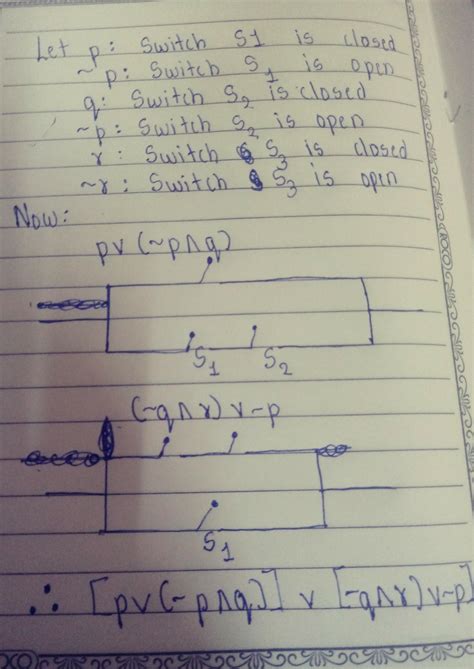 Let p: Switch S1 is closed
~p: Switch S1 is open
q: Switch S2 is closed
~p: Switch S2 is open
r: Switch S3 is closed
~r: Switch S3 is open
Now:
p∨(~p∧q)
S1 S2
(~q∧r)∨~p
S1
∴ [p∨(~p∧q)] ∨ [~q∧r)∨~p]